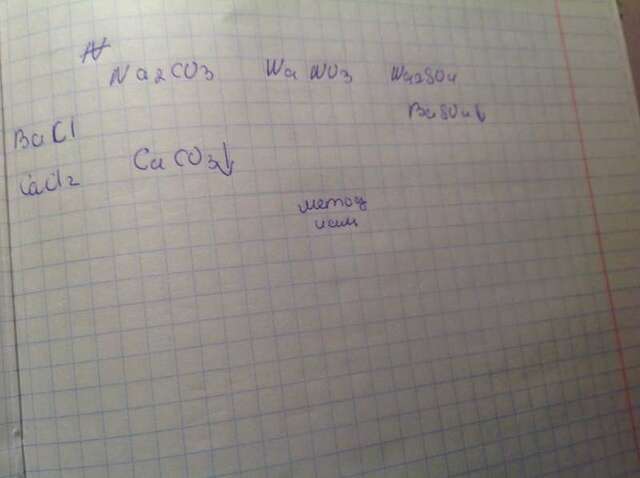 N
Na2CO3 Na NO3 Na2SO4
BaSO4↓
BaCl
CaCl2 CaCO3↓
метод
искл